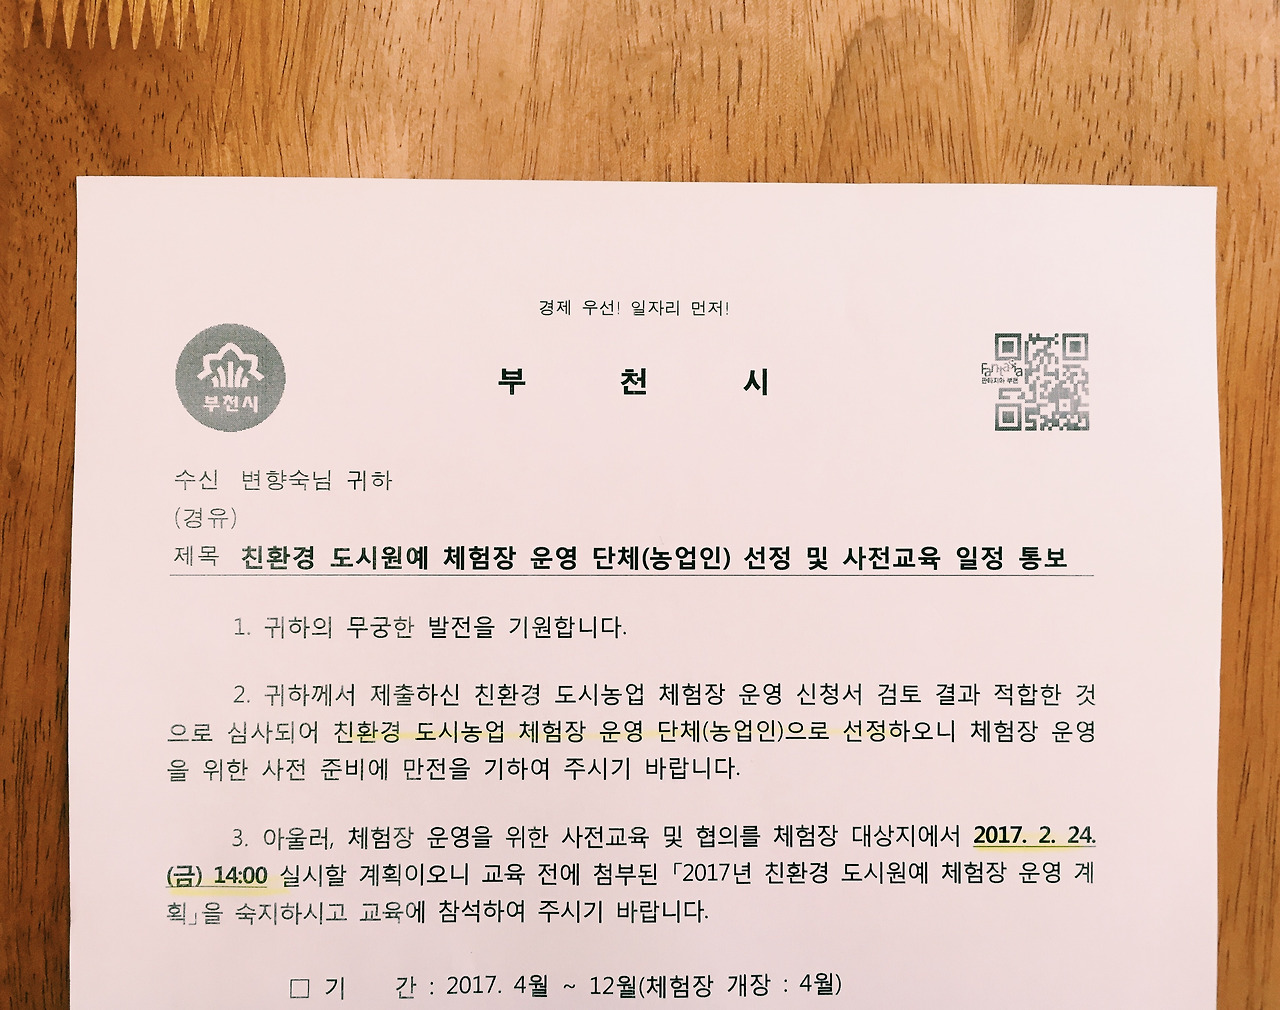 경제 우선! 일자리 먼저!
부천시
부 천 시
Fantasia
판타지아 부천
수신 변향숙님 귀하
(경유)
제목 친환경 도시원예 체험장 운영 단체(농업인) 선정 및 사전교육 일정 통보
1. 귀하의 무궁한 발전을 기원합니다.
2. 귀하께서 제출하신 친환경 도시농업 체험장 운영 신청서 검토 결과 적합한 것
으로 심사되어 친환경 도시농업 체험장 운영 단체(농업인)으로 선정하오니 체험장 운영
을 위한 사전 준비에 만전을 기하여 주시기 바랍니다.
3. 아울러, 체험장 운영을 위한 사전교육 및 협의를 체험장 대상지에서 2017. 2. 24.
(금) 14:00 실시할 계획이오니 교육 전에 첨부된 「2017년 친환경 도시원예 체험장 운영 계
획」을 숙지하시고 교육에 참석하여 주시기 바랍니다.
□ 기 간 : 2017. 4월 ~ 12월(체험장 개장 : 4월)